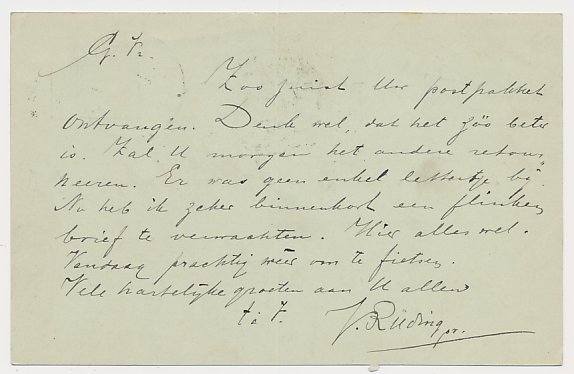 G. Vr.
Zoo juist Uw postpakket
ontvangen. Denk wel, dat het zóó beter
is. Zal U morgen het andere retour-
neeren. Er was geen enkel lettertje bij.
Nu heb ik zeker binnenkort een flinken
brief te verwachten. Hier alles wel.
Vandaag prachtig weer om te fietsen.
Vele hartelijke groeten aan U allen
t. à. V.
J. Rüding